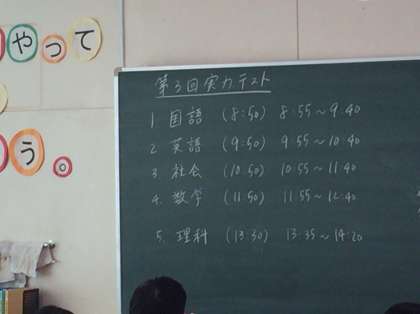 やって
う。
第3回実力テスト
1 国語 (8:50) 8:55～9:40
2 英語 (9:50) 9:55～10:40
3 社会 (10:50) 10:55～11:40
4. 数学 (11:50) 11:55～12:40
5. 理科 (13:30) 13:35～14:20